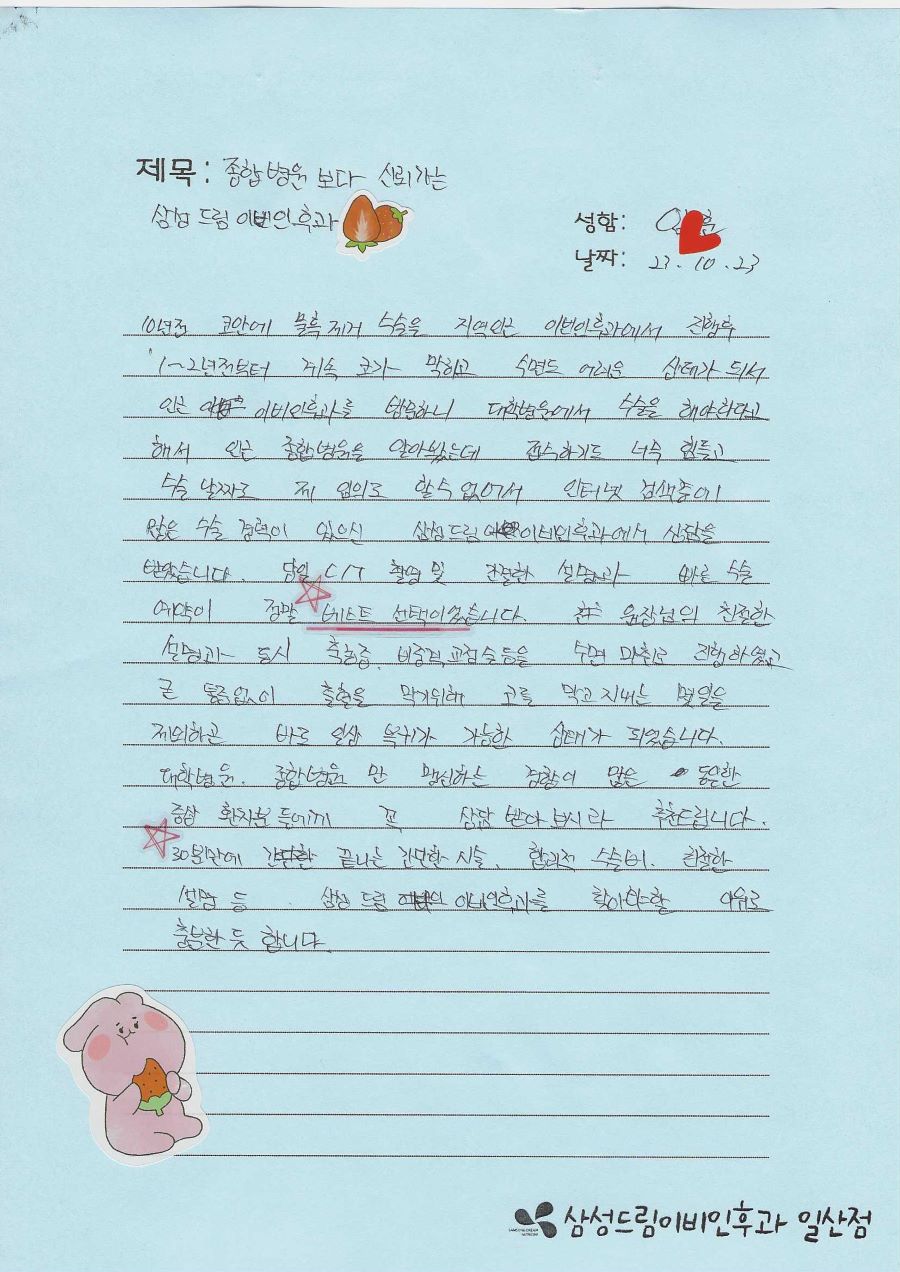 제목: 종합병원 보다 신뢰가는
삼성 드림 이비인후과
성함:
날짜: 23. 10. 23
10년전 코안에 물혹제거 수술을 지역인근 이비인후과에서 진행후
1~2년전부터 계속 코가 막히고 수면도 어려운 상태가 되서
인근 이비인후과를 방문하니 대학병원에서 수술을 해야한다고
해서 인근 종합병원을 알아봤는데 접수하기도 너무 힘들고
수술 날짜도 제 임의로 할수 없어서 인터넷 검색중에
많은 수술 경력이 있으신 삼성드림 이비인후과에서 상담을
받았습니다. 당일 C/T 촬영 및 친절한 설명과 빠른 수술
예약이 정말 베스트 선택이었습니다. 원장님의 친절한
설명과 동시 축농증, 비중격교정술등을 수면 마취로 진행하였고
큰 통증없이 출혈을 막기위해 코를 막고 지내는 몇일을
제외하곤 바로 일상 복귀가 가능한 상태가 되었습니다.
대학병원, 종합병원 만 맹신하는 경향이 많은 동일한
증상 환자분 들에게 꼭 상담 받아 보시라 추천드립니다.
30분만에 끝나는 간단한 시술, 합리적 수술비, 친절한
설명 등 삼성 드림 이비인후과를 찾아가야할 이유로
충분한 듯 합니다.
삼성드림이비인후과 일산점